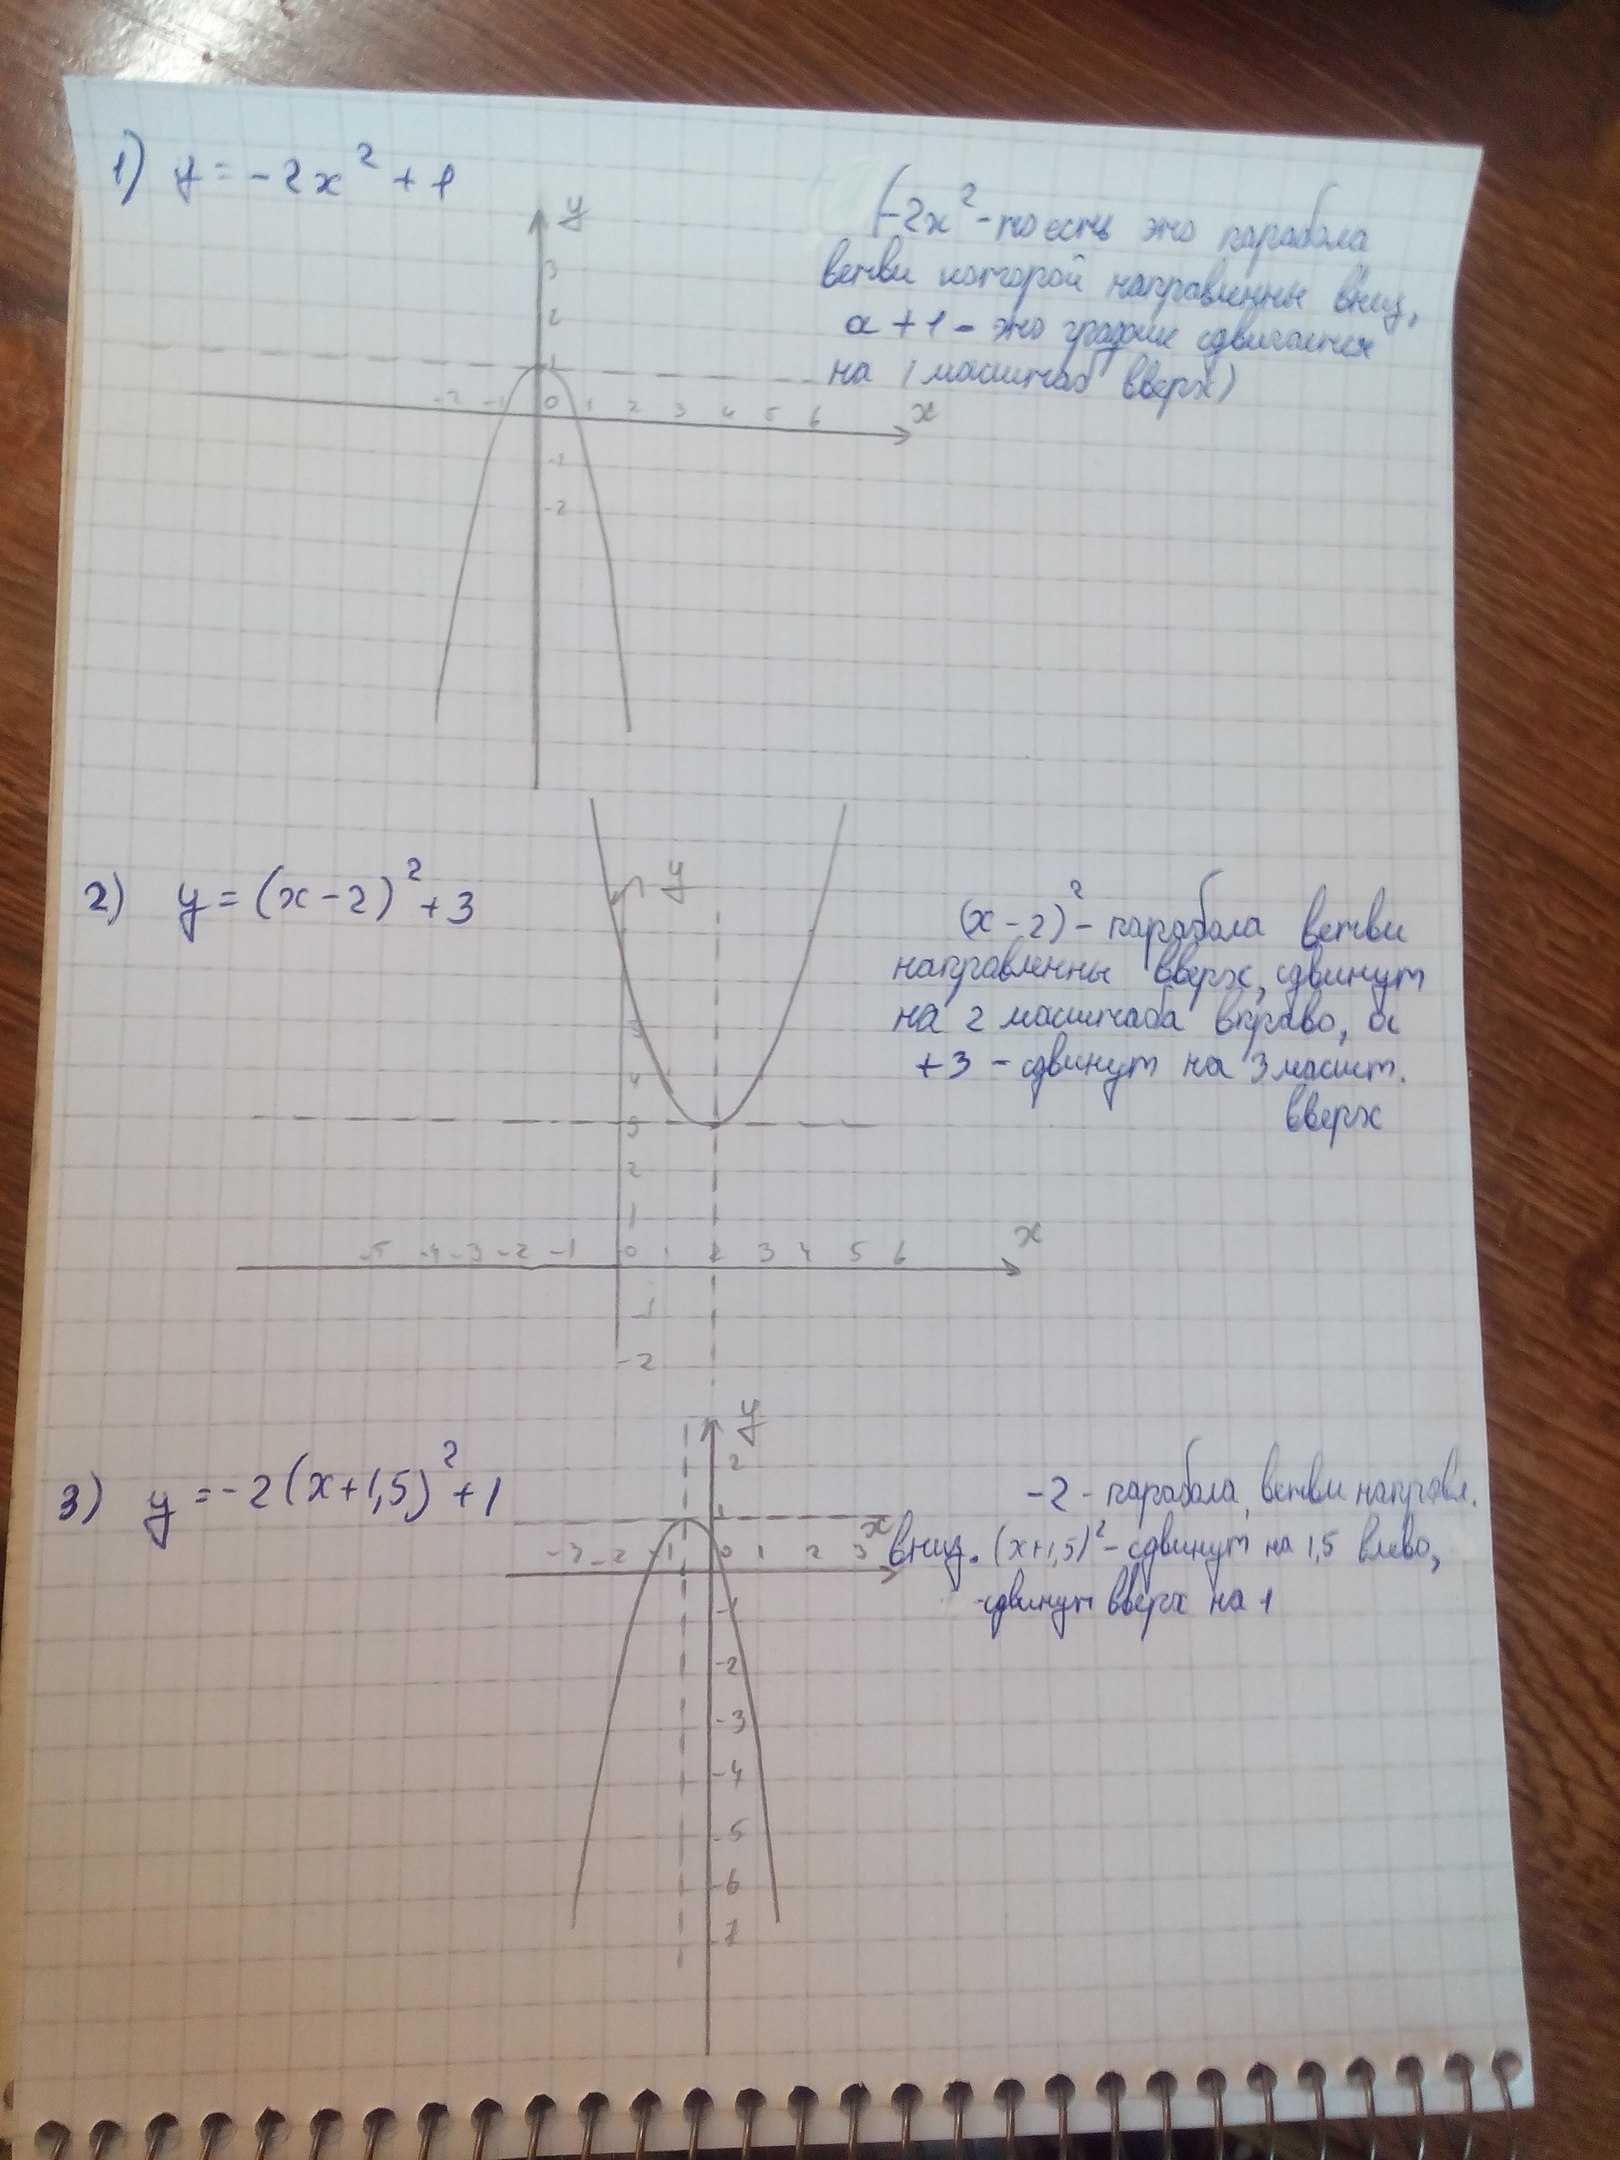 1) y = -2x² + 1
y
(-2x² - то есть это парабола
ветви которой направленны вниз,
а +1 - это график сдвигается
на 1 масштаб вверх)
3
2
1
-2 -1 0 1 2 3 4 5 6 x
-1
-2
2) y = (x-2)² + 3
y
(x-2)² - парабола ветви
направленны вверх, сдвинут
на 2 масштаба вправо, а
+3 - сдвинут на 3 масшт.
вверх
5
4
3
2
1
-5 -4 -3 -2 -1 0 1 2 3 4 5 6 x
-1
-2
3) y = -2(x+1,5)² + 1
y
-2 - парабола, ветви направл.
вниз. (x+1,5)² - сдвинут на 1,5 влево,
сдвинут вверх на 1
2
1
-3 -2 -1 0 1 2 3 x
-1
-2
-3
-4
-5
-6
-7